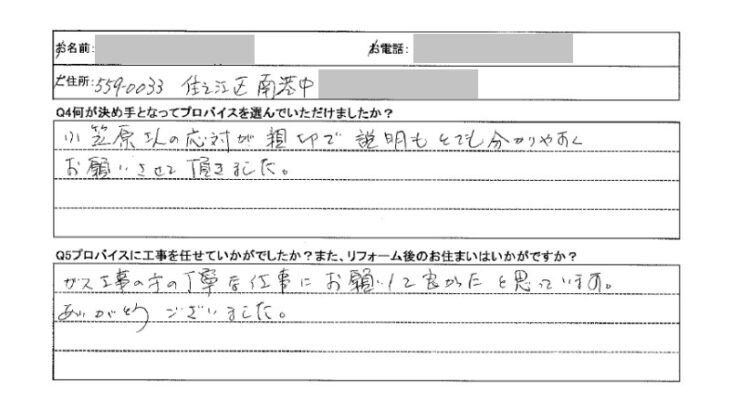 お名前: お電話:
ご住所: 559-0033 住之江区南港中
Q4何が決め手となってプロバイスを選んでいただけましたか？
小笠原さんの応対が親切で説明もとても分かりやすく
お願いさせて頂きました。
Q5プロバイスに工事を任せていかがでしたか？また、リフォーム後のお住まいはいかがですか？
ガス工事の方の丁寧な仕事にお願いして良かったと思っています。
ありがとうございました。